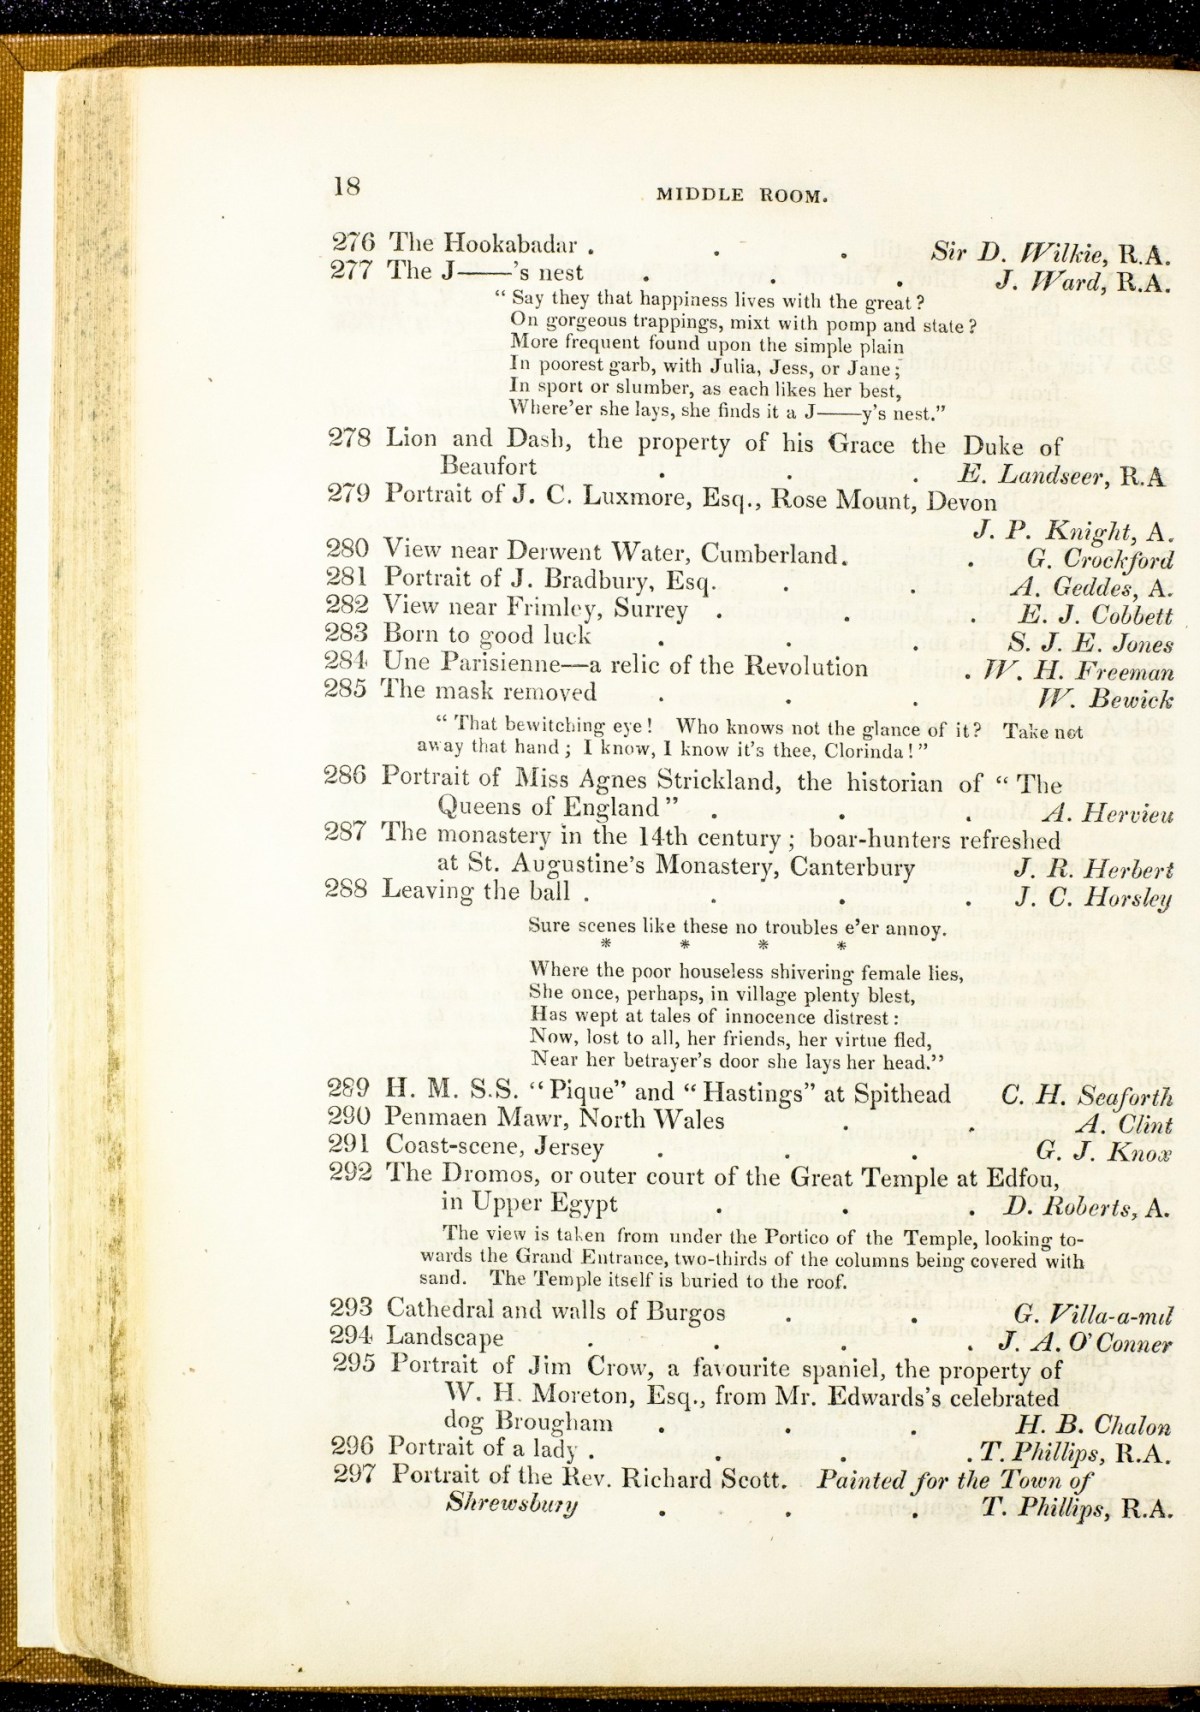 18
MIDDLE ROOM.
276 The Hookabadar . . . Sir D. Wilkie, R.A.
277 The J——'s nest . . . J. Ward, R.A.
“ Say they that happiness lives with the great ?
On gorgeous trappings, mixt with pomp and state ?
More frequent found upon the simple plain
In poorest garb, with Julia, Jess, or Jane ;
In sport or slumber, as each likes her best,
Where'er she lays, she finds it a J——y's nest.”
278 Lion and Dash, the property of his Grace the Duke of
Beaufort . . . E. Landseer, R.A
279 Portrait of J. C. Luxmore, Esq., Rose Mount, Devon
J. P. Knight, A.
280 View near Derwent Water, Cumberland. . G. Crockford
281 Portrait of J. Bradbury, Esq. . . A. Geddes, A.
282 View near Frimley, Surrey . . . E. J. Cobbett
283 Born to good luck . . . S. J. E. Jones
284 Une Parisienne—a relic of the Revolution . W. H. Freeman
285 The mask removed . . . W. Bewick
“ That bewitching eye ! Who knows not the glance of it ? Take not
away that hand ; I know, I know it's thee, Clorinda ! ”
286 Portrait of Miss Agnes Strickland, the historian of “ The
Queens of England ” . . . A. Hervieu
287 The monastery in the 14th century ; boar-hunters refreshed
at St. Augustine's Monastery, Canterbury J. R. Herbert
288 Leaving the ball . . . . J. C. Horsley
Sure scenes like these no troubles e'er annoy.
* * * *
Where the poor houseless shivering female lies,
She once, perhaps, in village plenty blest,
Has wept at tales of innocence distrest :
Now, lost to all, her friends, her virtue fled,
Near her betrayer's door she lays her head.”
289 H. M. S.S. “ Pique” and “ Hastings” at Spithead C. H. Seaforth
290 Penmaen Mawr, North Wales . . A. Clint
291 Coast-scene, Jersey . . . G. J. Knox
292 The Dromos, or outer court of the Great Temple at Edfou,
in Upper Egypt . . . D. Roberts, A.
The view is taken from under the Portico of the Temple, looking to-
wards the Grand Entrance, two-thirds of the columns being covered with
sand. The Temple itself is buried to the roof.
293 Cathedral and walls of Burgos . . G. Villa-a-mil
294 Landscape . . . . J. A. O'Conner
295 Portrait of Jim Crow, a favourite spaniel, the property of
W. H. Moreton, Esq., from Mr. Edwards's celebrated
dog Brougham . . . H. B. Chalon
296 Portrait of a lady . . . . T. Phillips, R.A.
297 Portrait of the Rev. Richard Scott. Painted for the Town of
Shrewsbury . . . T. Phillips, R.A.